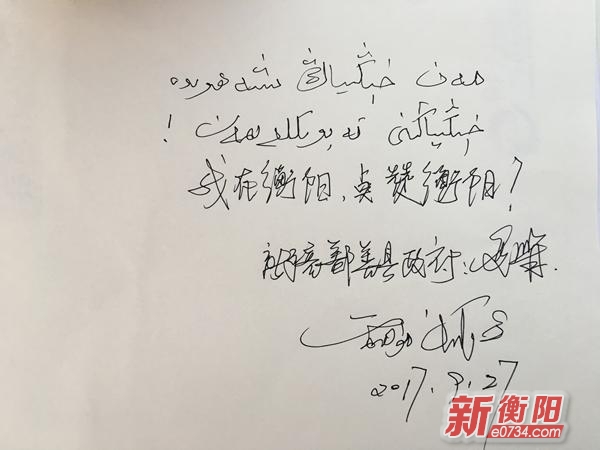 مەن خېڭياڭ شەھىرىدە
خېڭياڭنى تەبرىكلەيمەن !
我在衡阳，点赞衡阳！
鄯善县政府：
2017.9.27
新衡阳
e0734.com